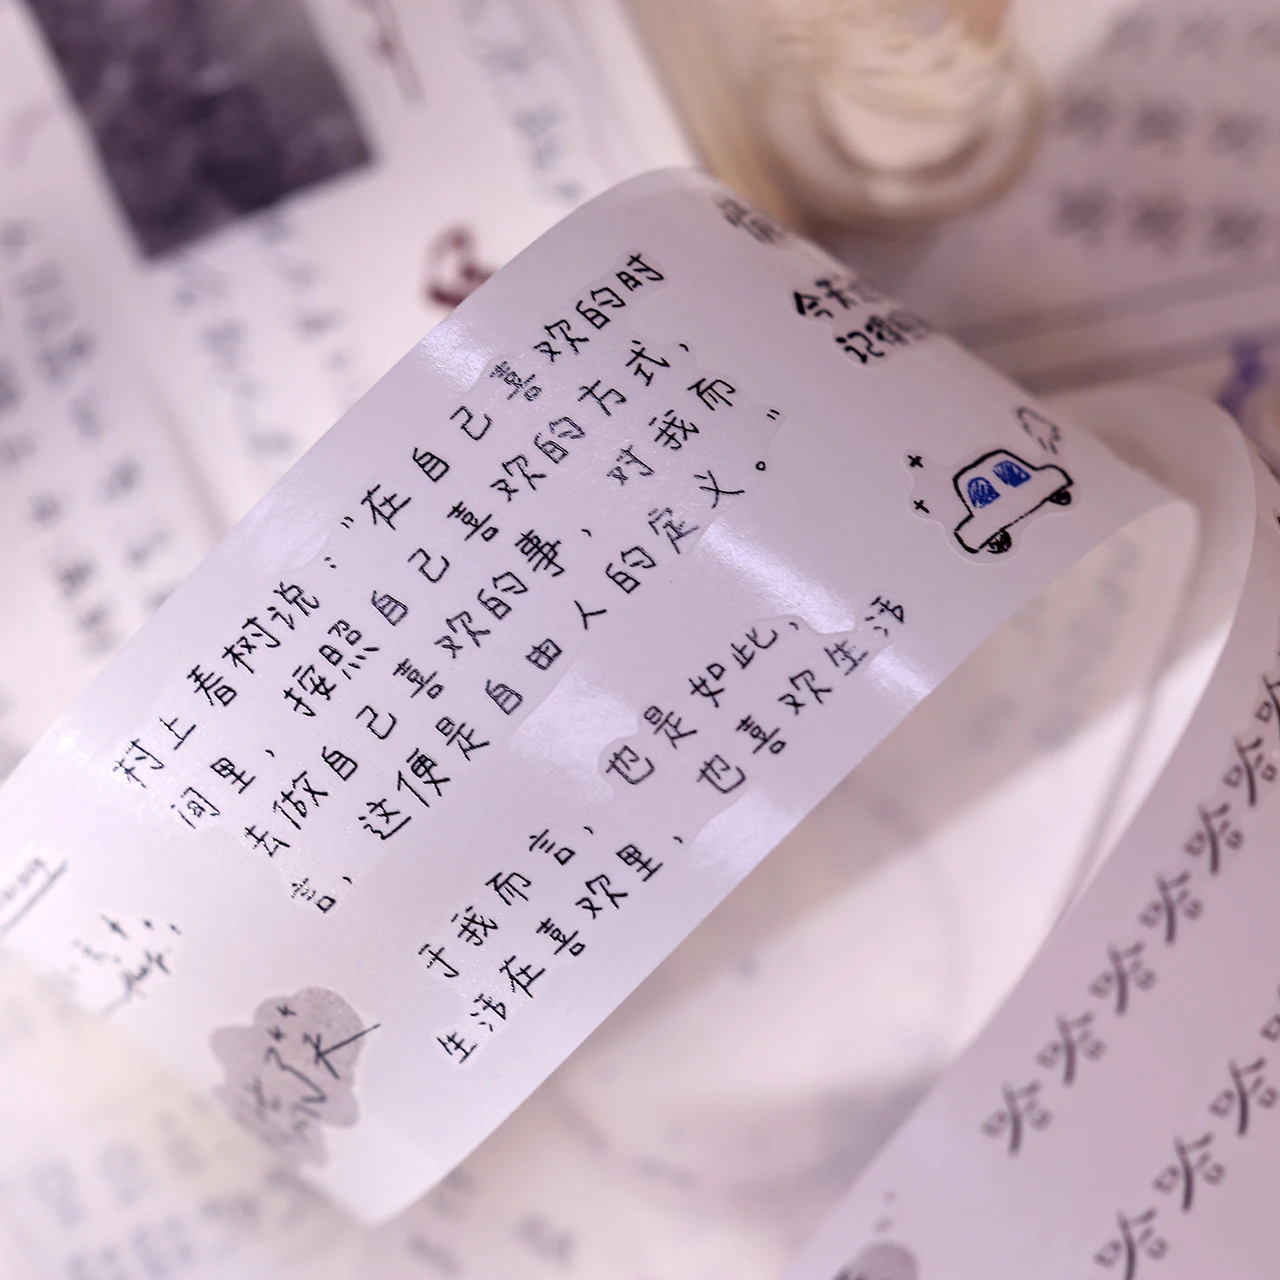 村上春树说：“在自己喜欢的时
间里，按照自己喜欢的方式，
去做自己喜欢的事，对我而
言，这便是自由人的定义。”
于我而言，也是如此，
生活在喜欢里，也喜欢生活
今天
记得
笑
哈哈哈哈哈哈哈
哈哈哈